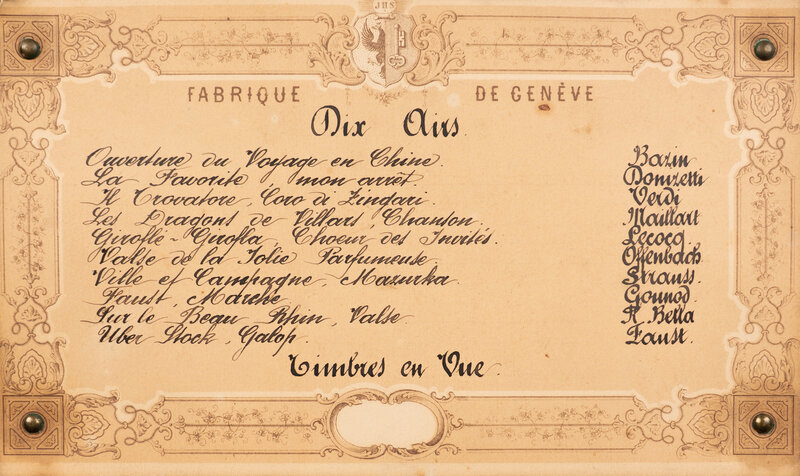 JHS
FABRIQUE DE GENÈVE
Dix Airs.
Ouverture du Voyage en Chine. Bazin
La Favorite mon arrêt. Donizetti
Il Trovatore, Coro di Zingari. Verdi
Les Dragons de Villars, Chanson. Maillart
Giroflé-Girofla, Choeur des Invités. Lecocq
Valse de la Jolie Parfumeuse. Offenbach
Ville et Campagne, Mazurka. Strauss.
Faust, Marche Gounod.
Sur le Beau Rhin, Valse. K. Bella
Uber Stock, Galop. Faust.
Timbres en Vue.